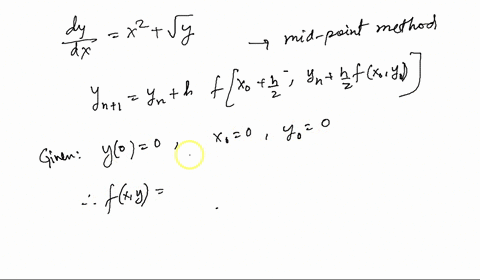 dy/dx = x² + √y → mid-point method
yₙ₊₁ = yₙ + h f[x₀ + h/2, yₙ + h/2 f(x₀, y₀)]
Given: y(0) = 0, x₀ = 0, y₀ = 0
∴ f(x,y) =